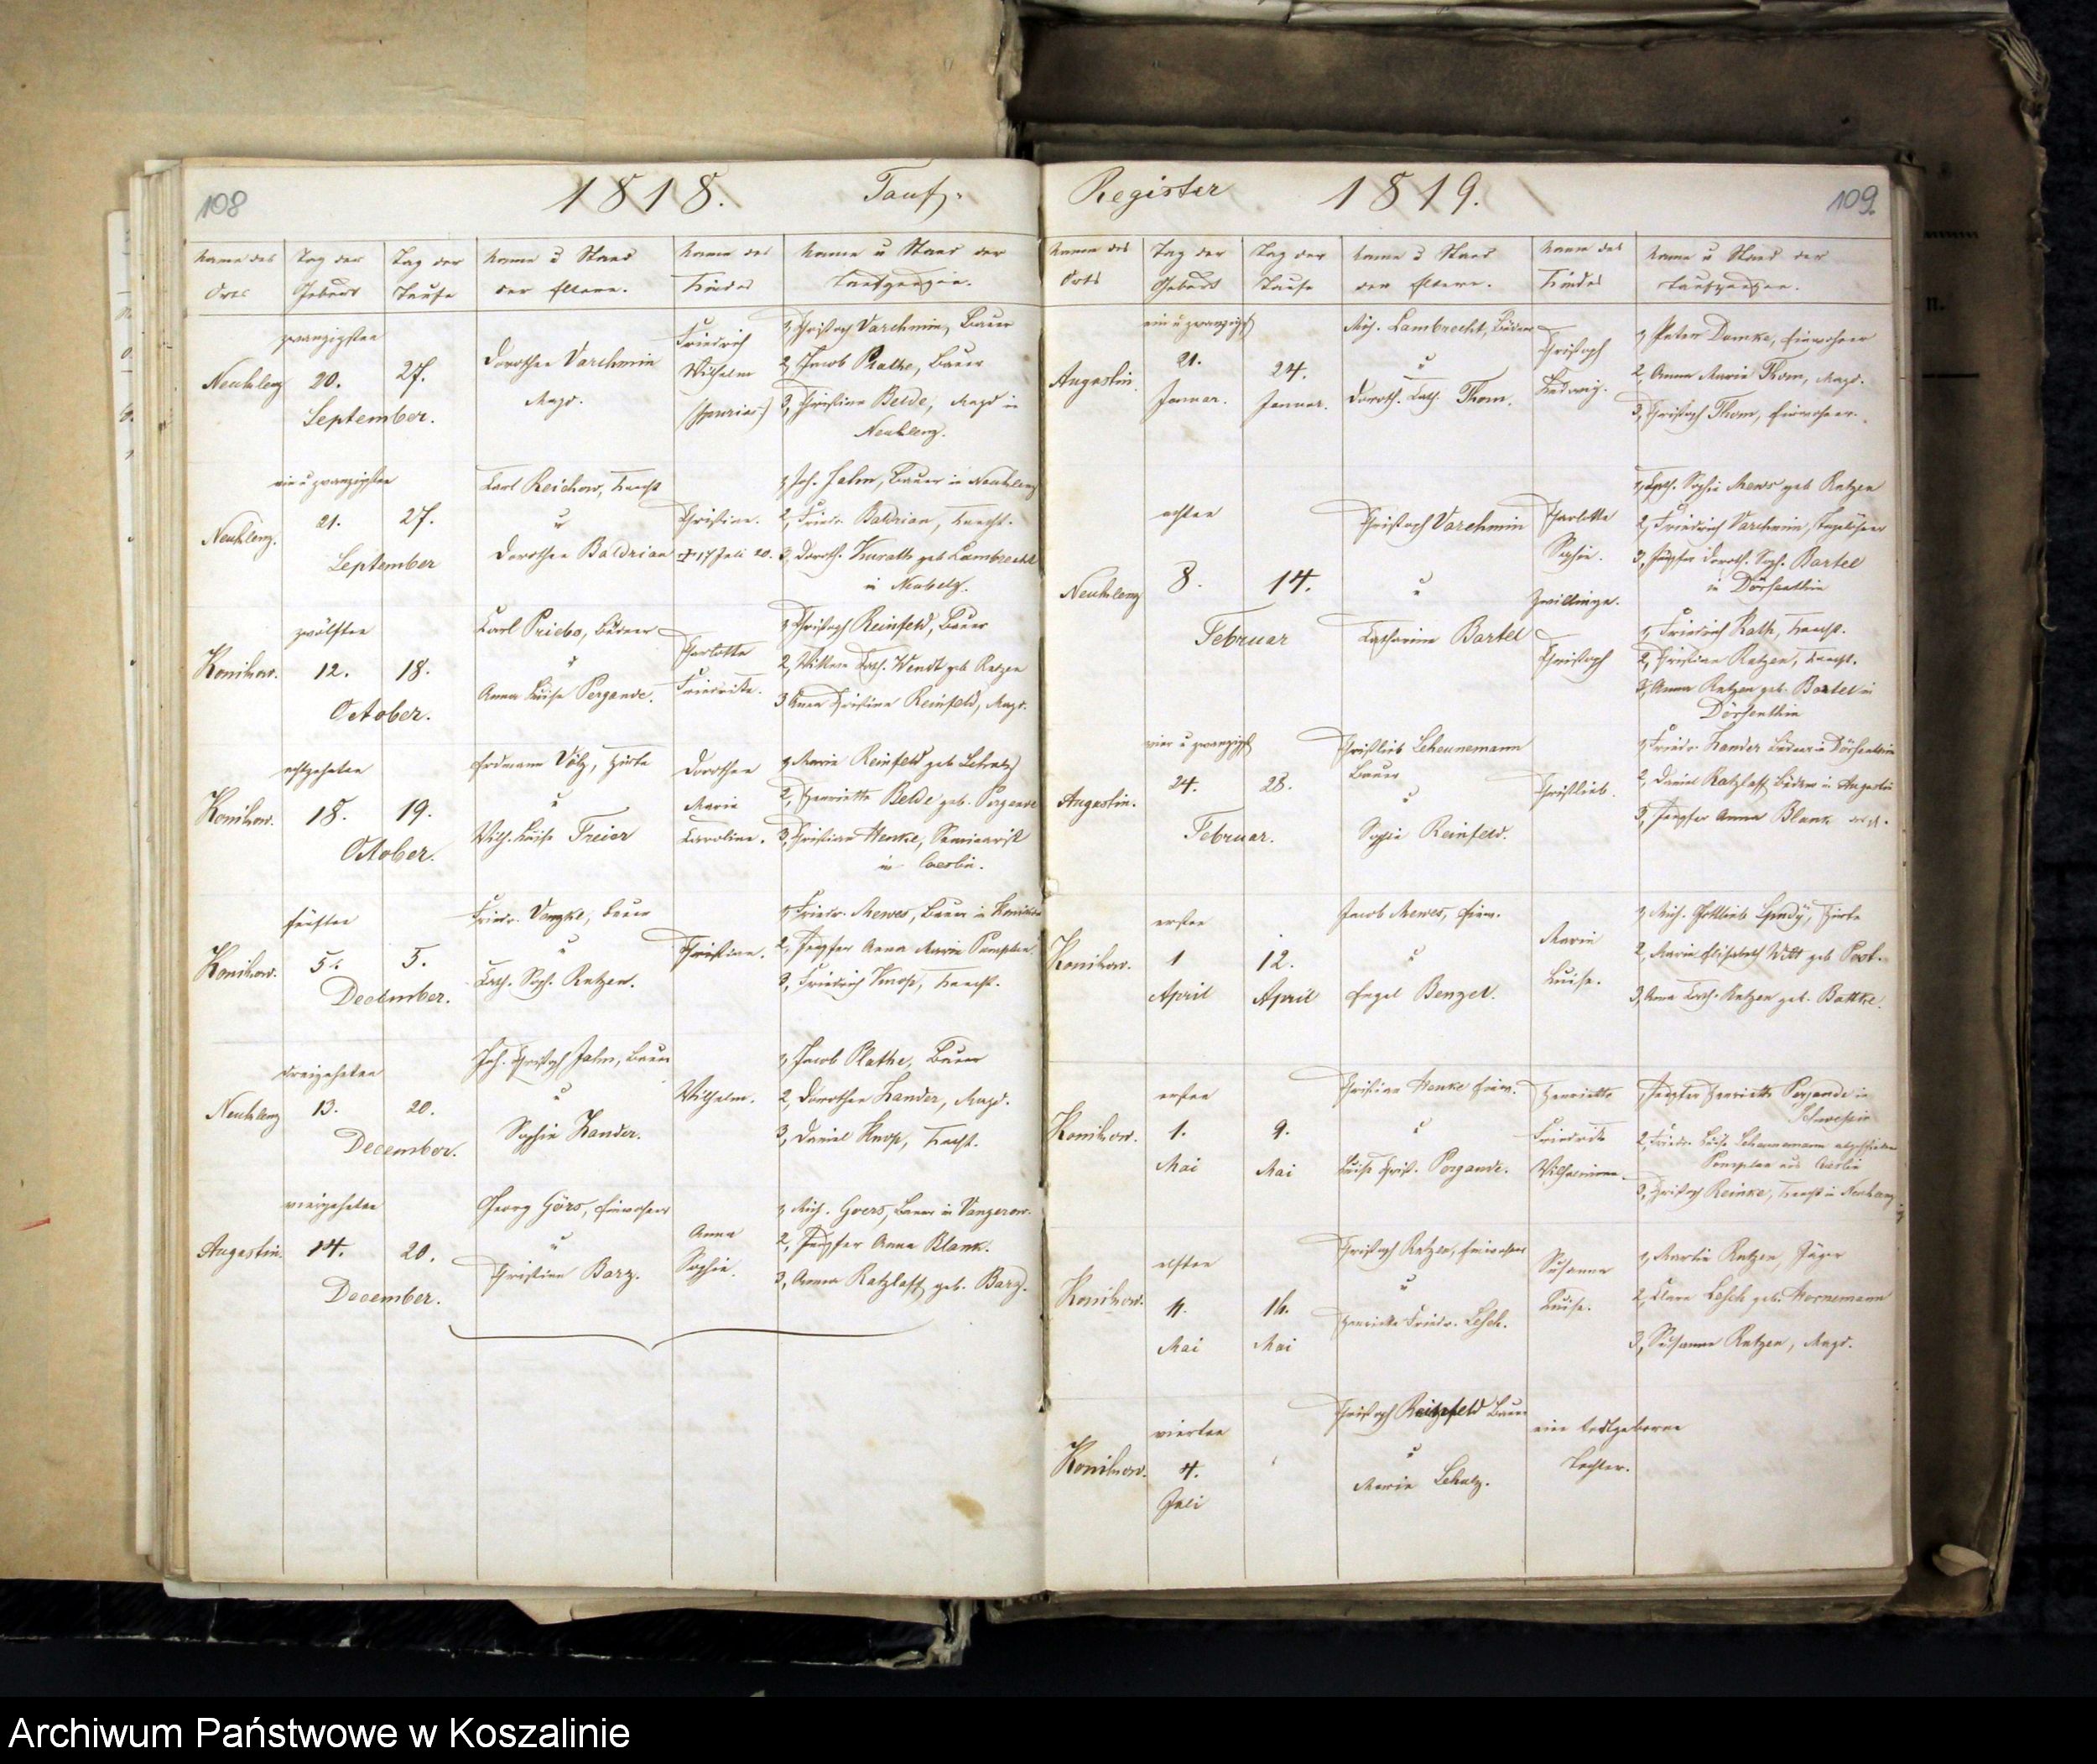 108
1818.
Tauf-
Name des Orts
Tag der Geburt
Tag der Taufe
Name u Stand der Eltern.
Name des Kindes
Name u Stand der Taufzeugen.
Neuklenz
zwanzigsten
20.
27.
September.
Dorothea Varchmin
Magd.
Friedrich
Wilhelm
1, Christoph Varchmin, Bauer
2, Jacob Plathe, Bauer
3, Christine Belde, Magd in
Neuklenz.
Neuklenz.
ein u zwanzigsten
21.
27.
September
Carl Reichow, Knecht
u
Dorothea Baldrian
Christine.
1, Joh. Jahn, Bauer in Neuklenz
2, Friedr. Baldrian, Knecht.
3, Doroth. Kurath geb Lambrecht
Konikow.
zwölften
12.
18.
October.
Carl Priebs, Büdner
u
Anna Luise Pergande.
Charlotte
Friedrike.
1, Christoph Reinfeld, Bauer
2, Wittwe Cath. Wendt geb Ratzen
3 Anna Christine Reinfeld, Magd.
Konikow.
achtzehnten
18.
19.
October.
Erdmann Völz, Hirte
u
Wilh. Luise Freier
Dorothea
Marie
Caroline.
1, Marie Reinfeld geb Schulz
2, Henriette Belde geb. Pergande
3, Christian Henke, Seminarist
in Coeslin.
Konikow.
fünften
5.
5.
December.
Friedr. Bauer
u
Cath. Soph. Ratzen.
Christian.
1, Friedr. Mewes, Bauer in Konikow
2, Jungfer Anna Marie Pumplun
3, Friedrich Knop, Knecht.
Neuklenz
dreizehnten
13.
20.
December.
Joh. Christoph Jahn, Bauer
u
Sophie Zander.
Wilhelm.
1, Jacob Plathe, Bauer
2, Dorothea Zander, Magd.
3, Daniel Knop, Knecht.
Augustin.
vierzehnten
14.
20.
December.
Georg Görs, Einwohner
u
Christine Barz.
Anna
Sophie.
1, Mich. Goers, Bauer in Vangerow.
2, Jungfer Anna Blank.
3, Anna Ratzlaff geb. Barz.
Register
1819.
109.
Name des Orts
Tag der Geburt
Tag der Taufe
Name u Stand der Eltern.
Name des Kindes
Name u Stand der Taufzeugen.
Augustin.
ein u zwanzigst
21.
Januar.
24.
Januar.
Mich. Lambrecht, Büdner
u
Doroth. Cath. Thom.
Christoph
Ludwig.
1, Peter Damke, Einwohner
2, Anna Marie Thom, Magd.
3, Christoph Thom, Einwohner.
Neuklenz
achten
8.
14.
Februar
Christoph Varchmin
u
Catharine Bartel
Charlotte
Sophie.
Zwillinge.
Christoph
1, Cath. Sophie Mews geb Ratzen
2, Friedrich Varchmin, Tagelöhner
3, Jungfer Doroth. Soph. Bartel
in Dörsenthin
1, Friedrich Rath, Knecht.
2, Christian Ratzen, Knecht.
3, Anna Ratzen geb. Bartel in
Dörsenthin
Augustin.
vier u zwanzigst
24.
28.
Februar.
Christlieb Scheunemann
Bauer
u
Sophie Reinfeld.
Christlieb.
1, Friedr. Zander Büdner in Dörsenthin
2, Daniel Ratzlaff Büdner in Augustin
3, Jungfer Anna Blank
Konikow.
ersten
1
April
12.
April
Jacob Mewes, Einw.
u
Engel Benzel.
Marie
Luise.
2, Marie Elisabeth Witt geb Post.
3, Anna Cath. Ratzen geb. Battke.
Konikow.
ersten
1.
Mai
9.
Mai
Christian Henke Einw.
u
Luise Christ. Pergande.
Henriette
Friedrike
Wilhelmine.
1, Jungfer Henriette Pergande in
2, Friedr. Luise Scheunemann
Pumplun aus Coeslin
3, Christoph Reinke, Knecht in Neuklenz
Konikow.
elften
11.
Mai
16.
Mai
Christoph Ratzen, Einwohner
u
Henriette Friedr. Lesch.
Susanne
Luise.
1, Martin Ratzen, Jäger
2, Clara Lesch geb. Hornemann
3, Susanne Ratzen, Magd.
Konikow.
vierten
4.
Juli
Christoph Reinfeld Bauer
u
Marie Schulz.
eine todtgeborne
Tochter.
Archiwum Państwowe w Koszalinie